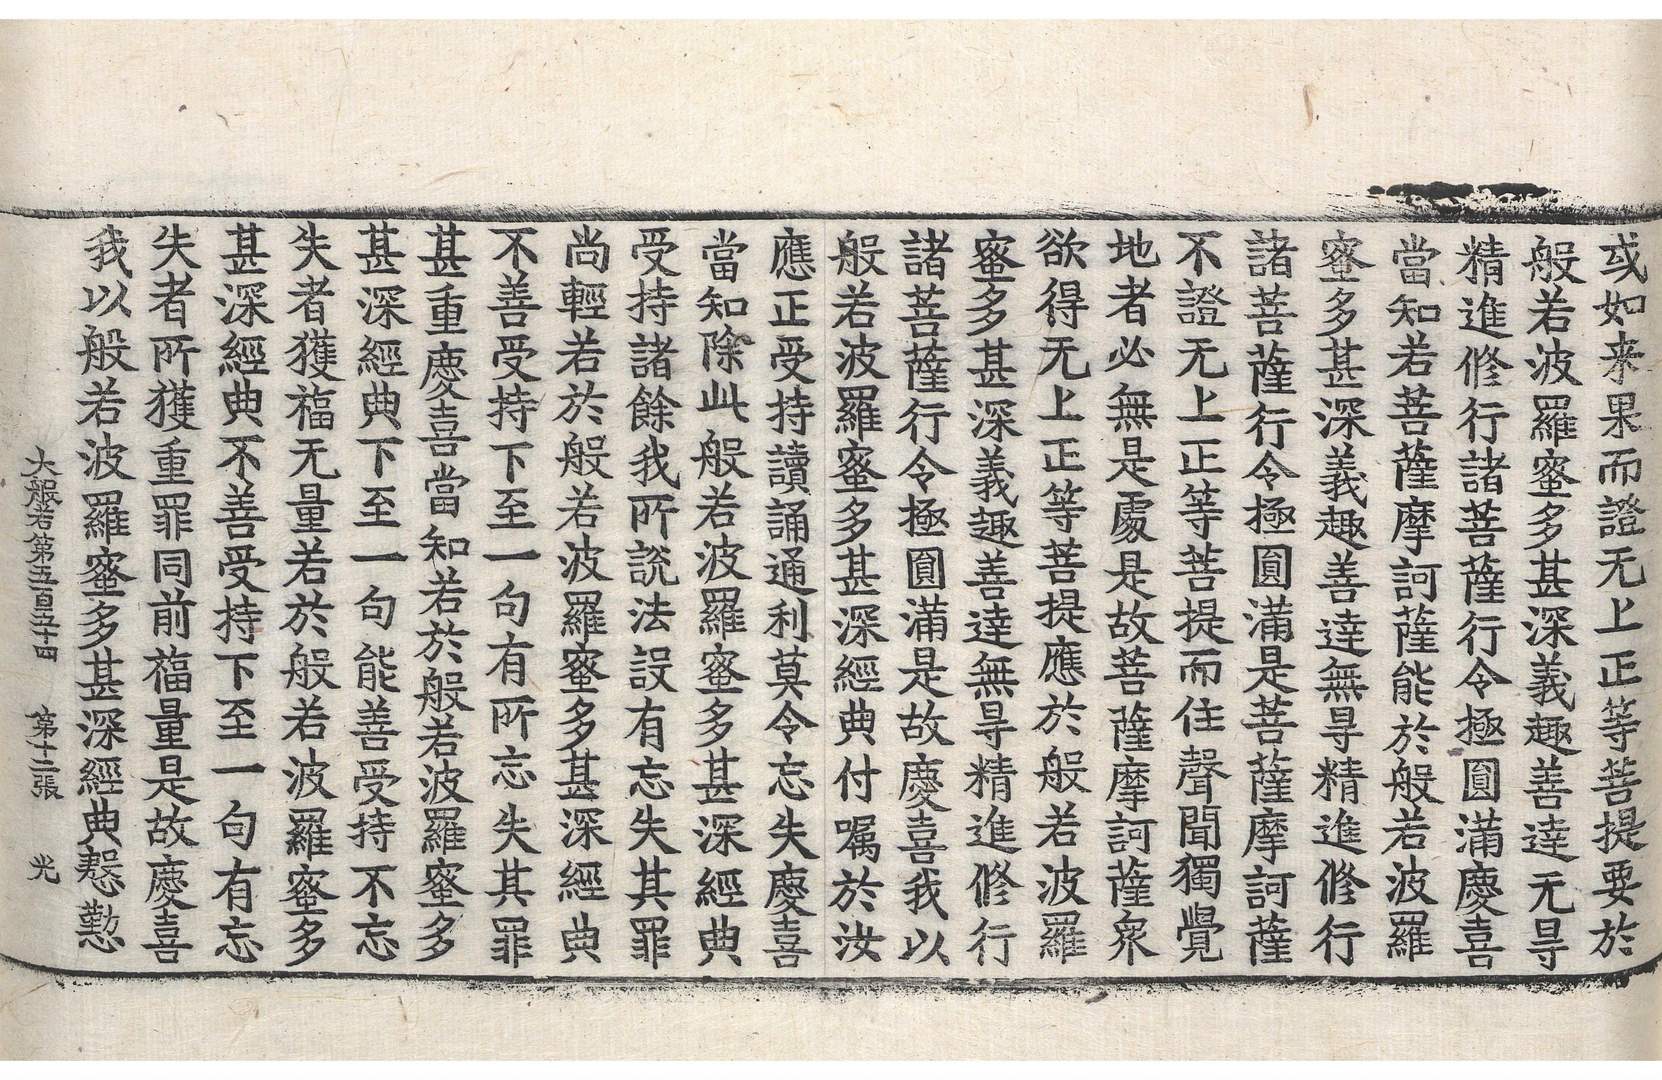 或如来果而證无上正等菩提要於
般若波羅蜜多甚深義趣善達无㝵
精進修行諸菩薩行令極圓滿慶喜
當知若菩薩摩訶薩能於般若波羅
蜜多甚深義趣善達無㝵精進修行
諸菩薩行令極圓滿是菩薩摩訶薩
不證无上正等菩提而住聲聞獨覺
地者必無是處是故菩薩摩訶薩衆
欲得无上正等菩提應於般若波羅
蜜多甚深義趣善達無㝵精進修行
諸菩薩行令極圓滿是故慶喜我以
般若波羅蜜多甚深經典付囑於汝
應正受持讀誦通利莫令忘失慶喜
當知除此般若波羅蜜多甚深經典
受持諸餘我所說法設有忘失其罪
尚輕若於般若波羅蜜多甚深經典
不善受持下至一句有所忘失其罪
甚重慶喜當知若於般若波羅蜜多
甚深經典下至一句能善受持不忘
失者獲福无量若於般若波羅蜜多
甚深經典不善受持下至一句有忘
失者所獲重罪同前福量是故慶喜
我以般若波羅蜜多甚深經典慇懃
大般若第五百五十四 第十二張 光